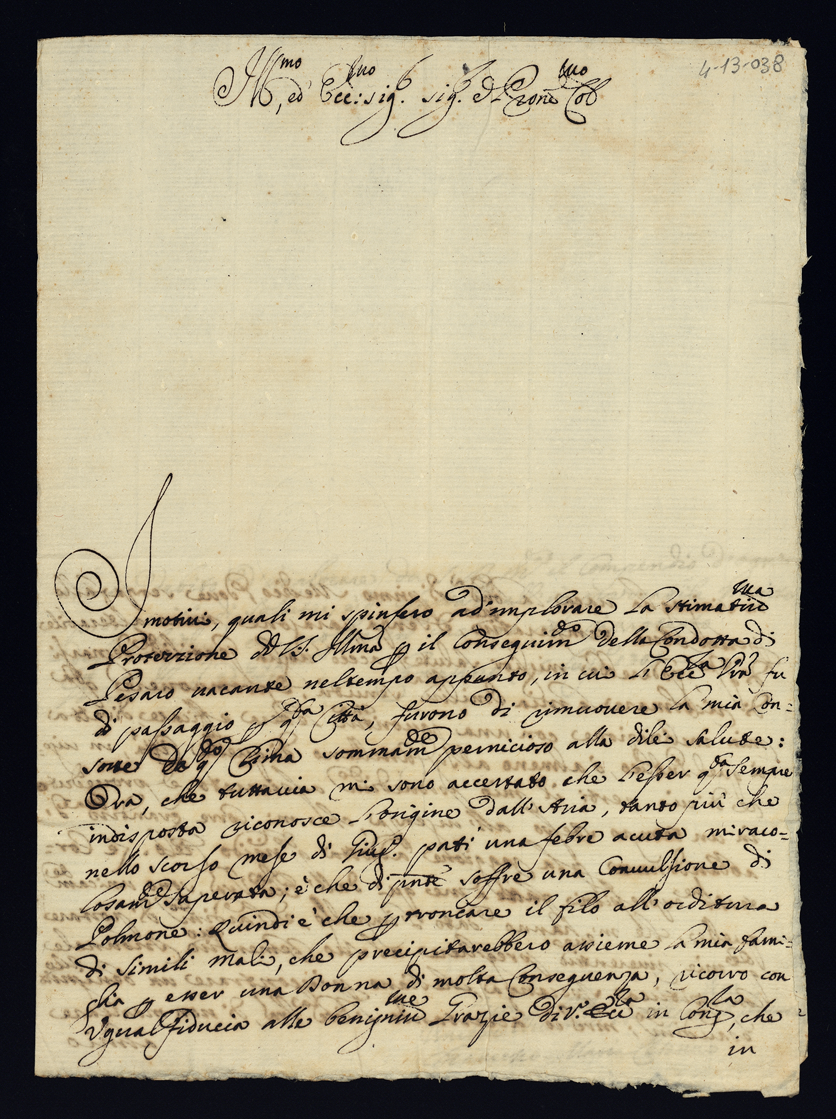 4-13-038
Ill.mo, ed Ecc:mo sig. sig. e P.rone Col.mo
I motivi, quali mi spinsero ad'implorare la stimatiss.ma
Protezzione di V.S. Illma p il Conseguim.to della Condotta di
Pesaro vacante nel tempo appunto, in cui l'Ecc.za Vra fu
di passaggio p q.sta Città, furono di rimuovere la mia Con=
sorte da q.sto Clima sommam.te pernicioso alla di lei salute:
Ora, che tuttavia mi sono accertato che l'esser q.sta sempre
indisposta riconosce l'origine dall'Aria, tanto più che
nello scorso mese di Giug.o patì una febre acuta miraco=
losam.te superata; è che di pnte soffre una Convulsione di
Polmone: Quindi è che p troncare il filo all'orditura
di simili mali, che precipitarebbero assieme la mia fami=
glia p esser una Donna di molta Conseguenza, ricorro con
Ugual fiducia alle benignis.me Grazie di V.ra Ecc.za in Cong.ra, che
in